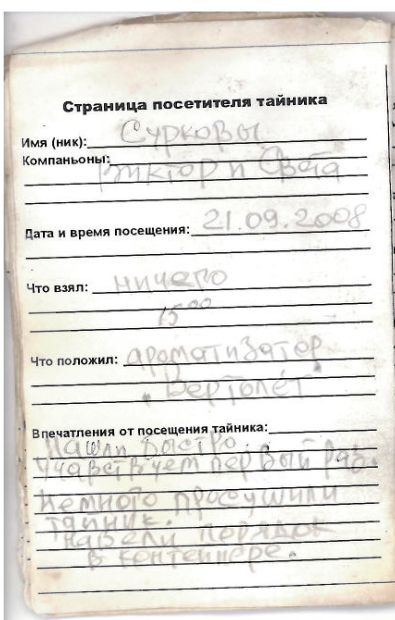 Страница посетителя тайника
Имя (ник): Сурковы
Компаньоны:
Виктор и Света
Дата и время посещения: 21.09.2008
Что взял: ничего
15⁰⁰
Что положил: ароматизатор
"Вертолёт"
Впечатления от посещения тайника:
Нашли быстро.
Учавствуем первый раз.
Немного просушили
тайник.
Навели порядок
в контейнере.